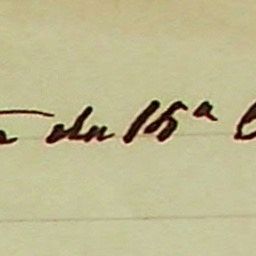 da 15ª